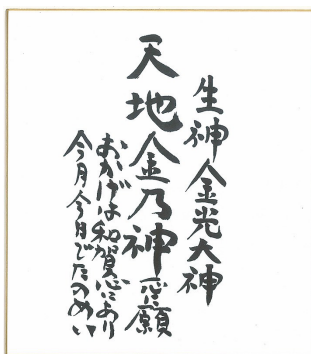 生神金光大神
天地金乃神一心願
おかげは和賀心にあり
今月今日でたのめい